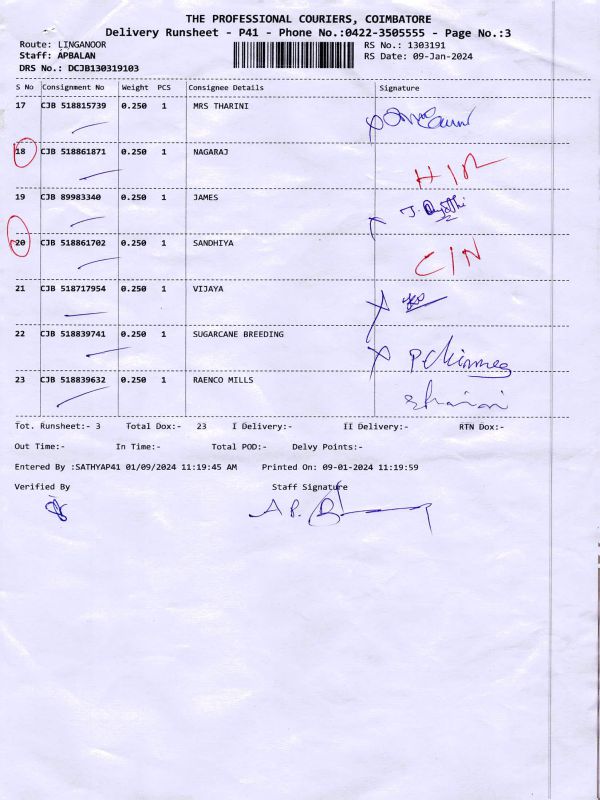 THE PROFESSIONAL COURIERS, COIMBATORE
Delivery Runsheet - P41 - Phone No.:0422-3505555 - Page No.:3
Route: LINGANOOR RS No.: 1303191
Staff: APBALAN RS Date: 09-Jan-2024
DRS No.: DCJB130319103
S No Consignment No Weight PCS Consignee Details Signature
17 CJB 518815739 0.250 1 MRS THARINI
18 CJB 518861871 0.250 1 NAGARAJ
19 CJB 89983340 0.250 1 JAMES
20 CJB 518861702 0.250 1 SANDHIYA C/N
21 CJB 518717954 0.250 1 VIJAYA
22 CJB 518839741 0.250 1 SUGARCANE BREEDING
23 CJB 518839632 0.250 1 RAENCO MILLS
Tot. Runsheet:- 3 Total Dox:- 23 I Delivery:- II Delivery:- RTN Dox:-
Out Time:- In Time:- Total POD:- Delvy Points:-
Entered By :SATHYAP41 01/09/2024 11:19:45 AM Printed On: 09-01-2024 11:19:59
Verified By Staff Signature